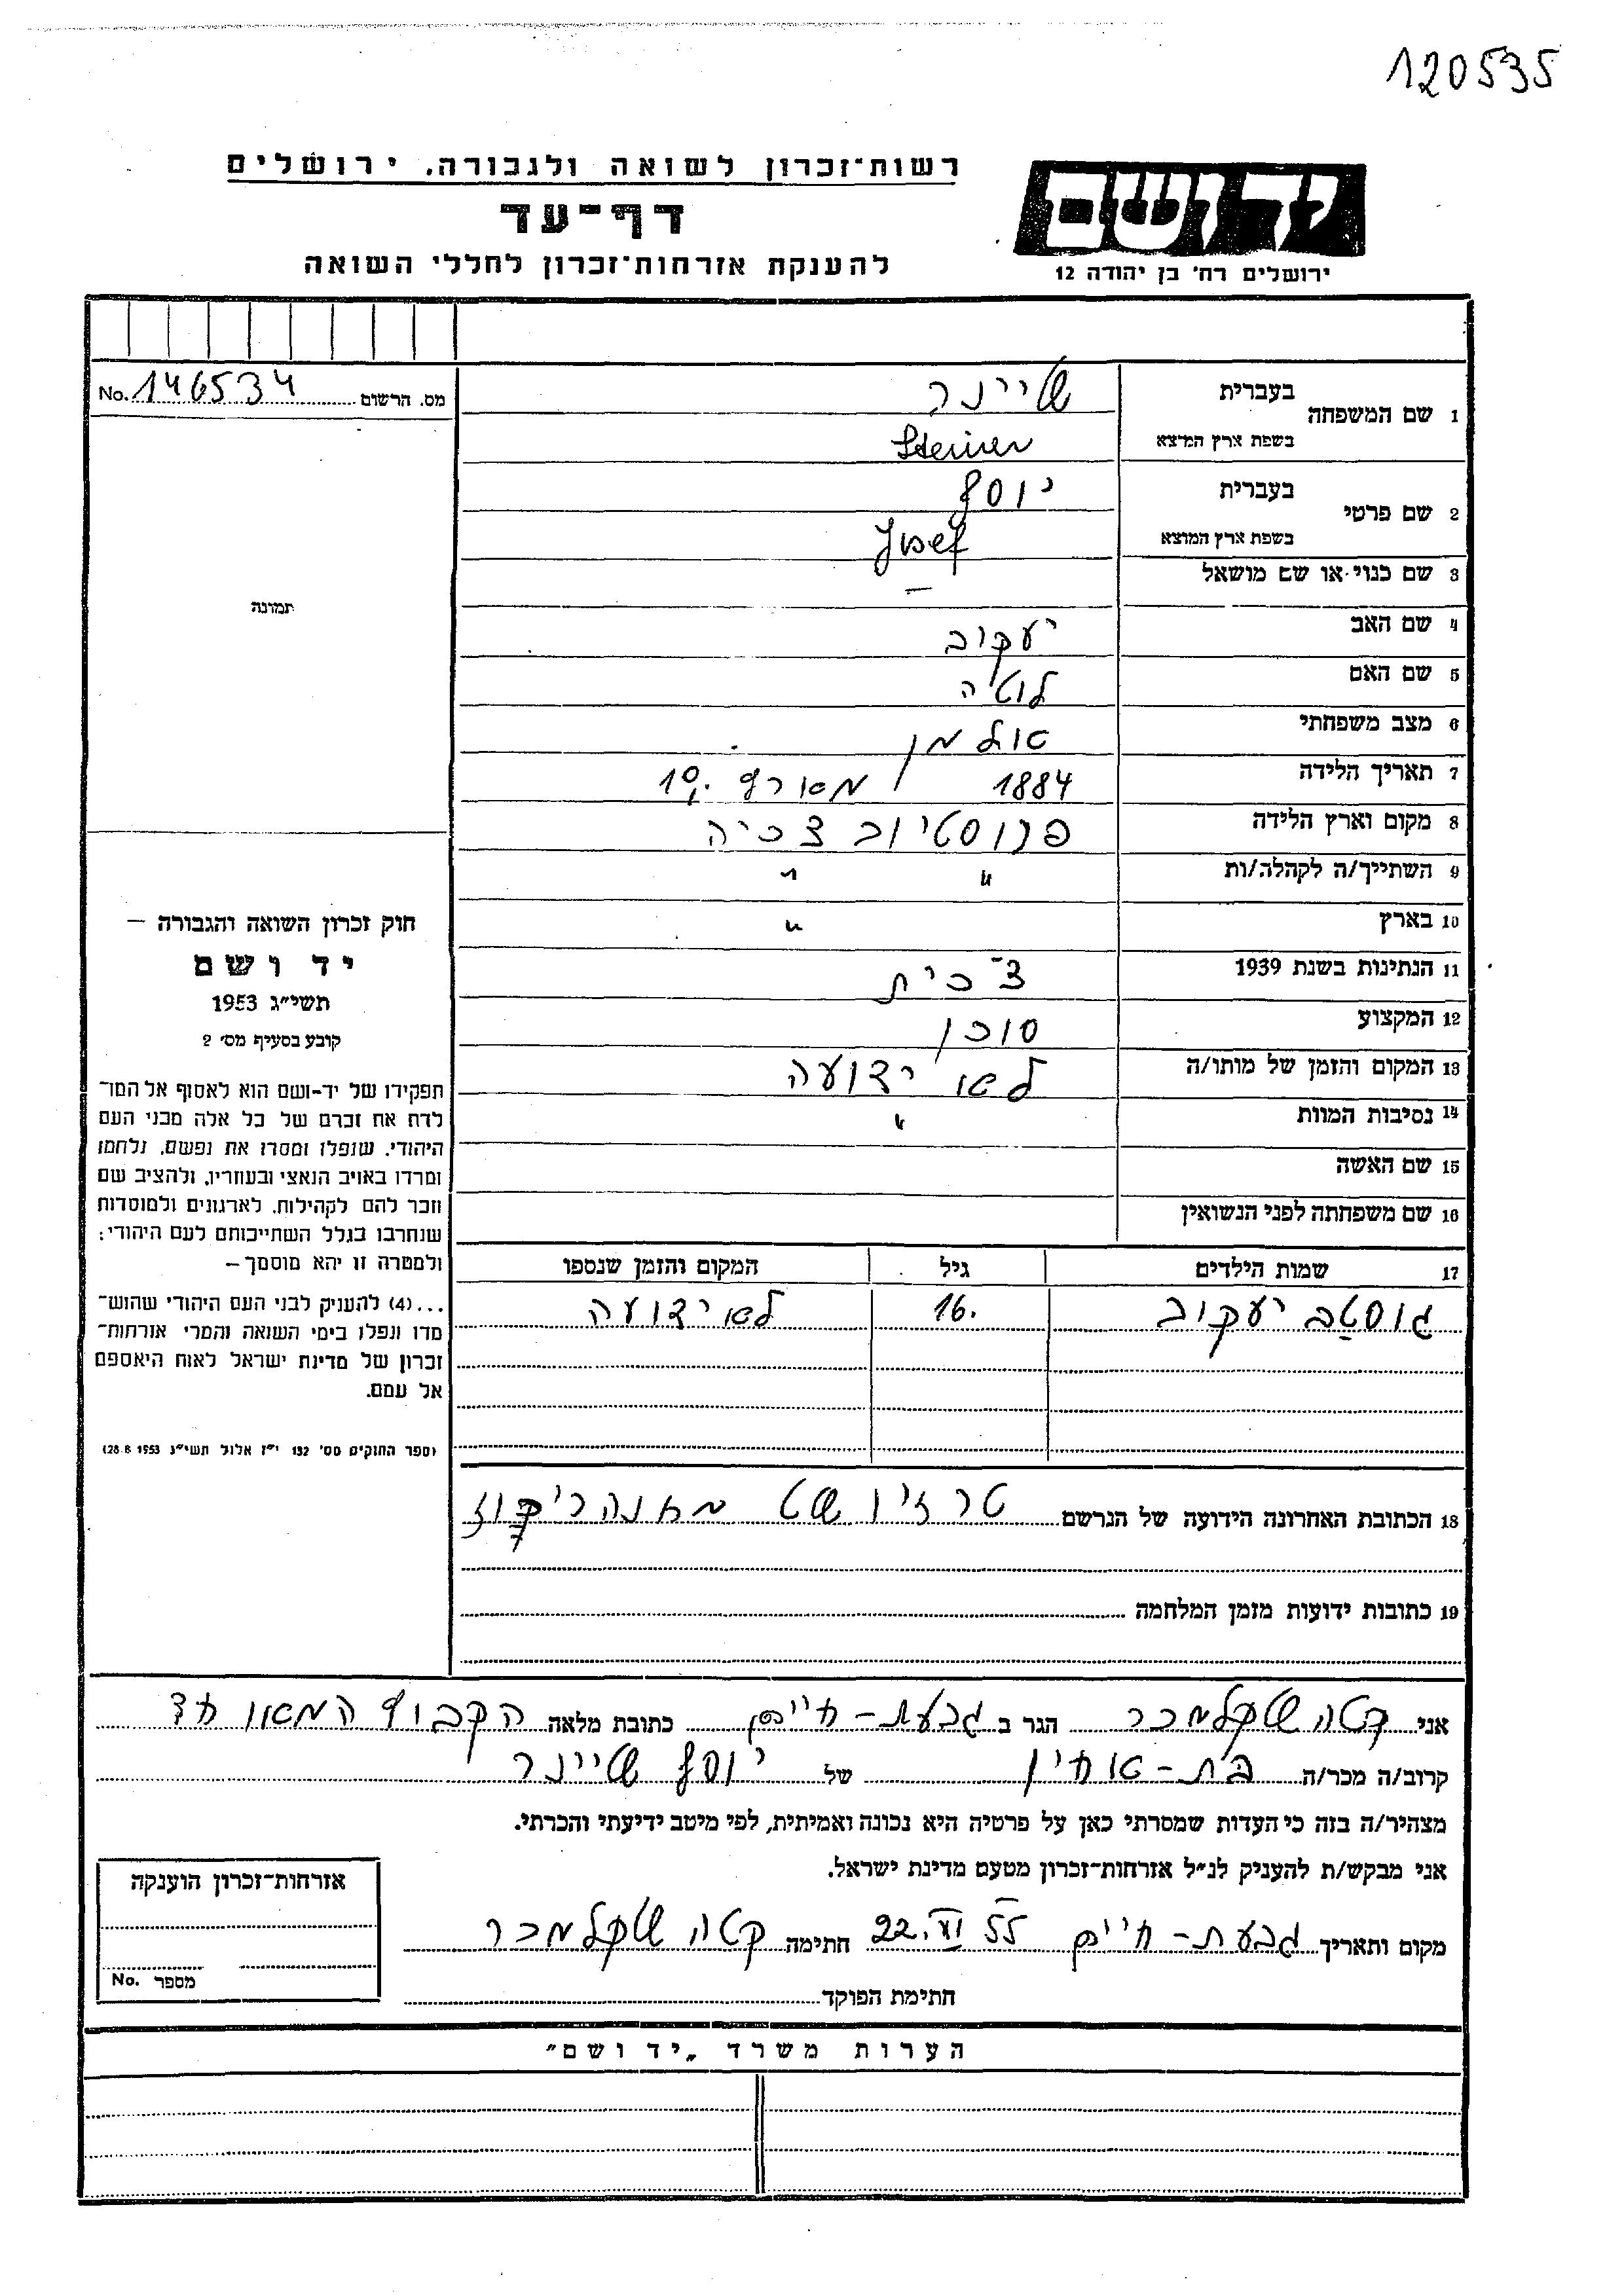 120535
יד ושם
ירושלים רח' בן יהודה 12
רשות־זכרון לשואה ולגבורה, ירושלים
דף־עד
להענקת אזרחות־זכרון לחללי השואה
מס. הרשום 146534 No.
תמונה
1 שם המשפחה בעברית שיינר
בשפת ארץ המוצא Steiner
2 שם פרטי בעברית יוסף
בשפת ארץ המוצא Josef
3 שם כנוי או שם מושאל –
4 שם האב יעקוב
5 שם האם
6 מצב משפחתי אלמן
7 תאריך הלידה 1884 מארץ 10.
8 מקום וארץ הלידה פרוסטיוב צכיה
9 השתייך/ה לקהלה/ות " "
10 בארץ "
11 הנתינות בשנת 1939 צ'כית
12 המקצוע סוכן
13 המקום והזמן של מותו/ה לא ידועה
14 נסיבות המוות "
15 שם האשה
16 שם משפחתה לפני הנשואין
17 שמות הילדים גיל המקום והזמן שנספו
גוסטב יעקוב 16. לא ידועה
18 הכתובת האחרונה הידועה של הנרשם
19 כתובות ידועות מזמן המלחמה
חוק זכרון השואה והגבורה –
יד ושם
תשי"ג 1953
קובע בסעיף מס' 2
תפקידו של יד-ושם הוא לאסוף אל המו־
לדת את זכרם של כל אלה מבני העם
היהודי, שנפלו ומסרו את נפשם, נלחמו
ומרדו באויב הנאצי ובעוזריו, ולהציב שם
וזכר להם לקהילות, לארגונים ולמוסדות
שנחרבו בגלל השתייכותם לעם היהודי;
ולמטרה זו יהא מוסמך –
...(4) להעניק לבני העם היהודי שהוש־
מדו ונפלו בימי השואה והמרי אזרחות־
זכרון של מדינת ישראל לאות היאספם
אל עמם.
(ספר החוקים מס' 132 י"ז אלול תשי"ג 28.8.1953)
אני קטה שקלמכר הגר ב גבעת-חיים כתובת מלאה הקבוץ המאוחד
קרוב/ה מכר/ה בת-אחין של יוסף שיינר
מצהיר/ה בזה כי העדות שמסרתי כאן על פרטיה היא נכונה ואמיתית, לפי מיטב ידיעתי והכרתי.
אני מבקש/ת להעניק לנ"ל אזרחות־זכרון מטעם מדינת ישראל.
מקום ותאריך גבעת-חיים 22. VI. 55 חתימה קטה שקלמכר
חתימת הפוקד
אזרחות־זכרון הוענקה
מספר No.
הערות משרד „יד ושם"